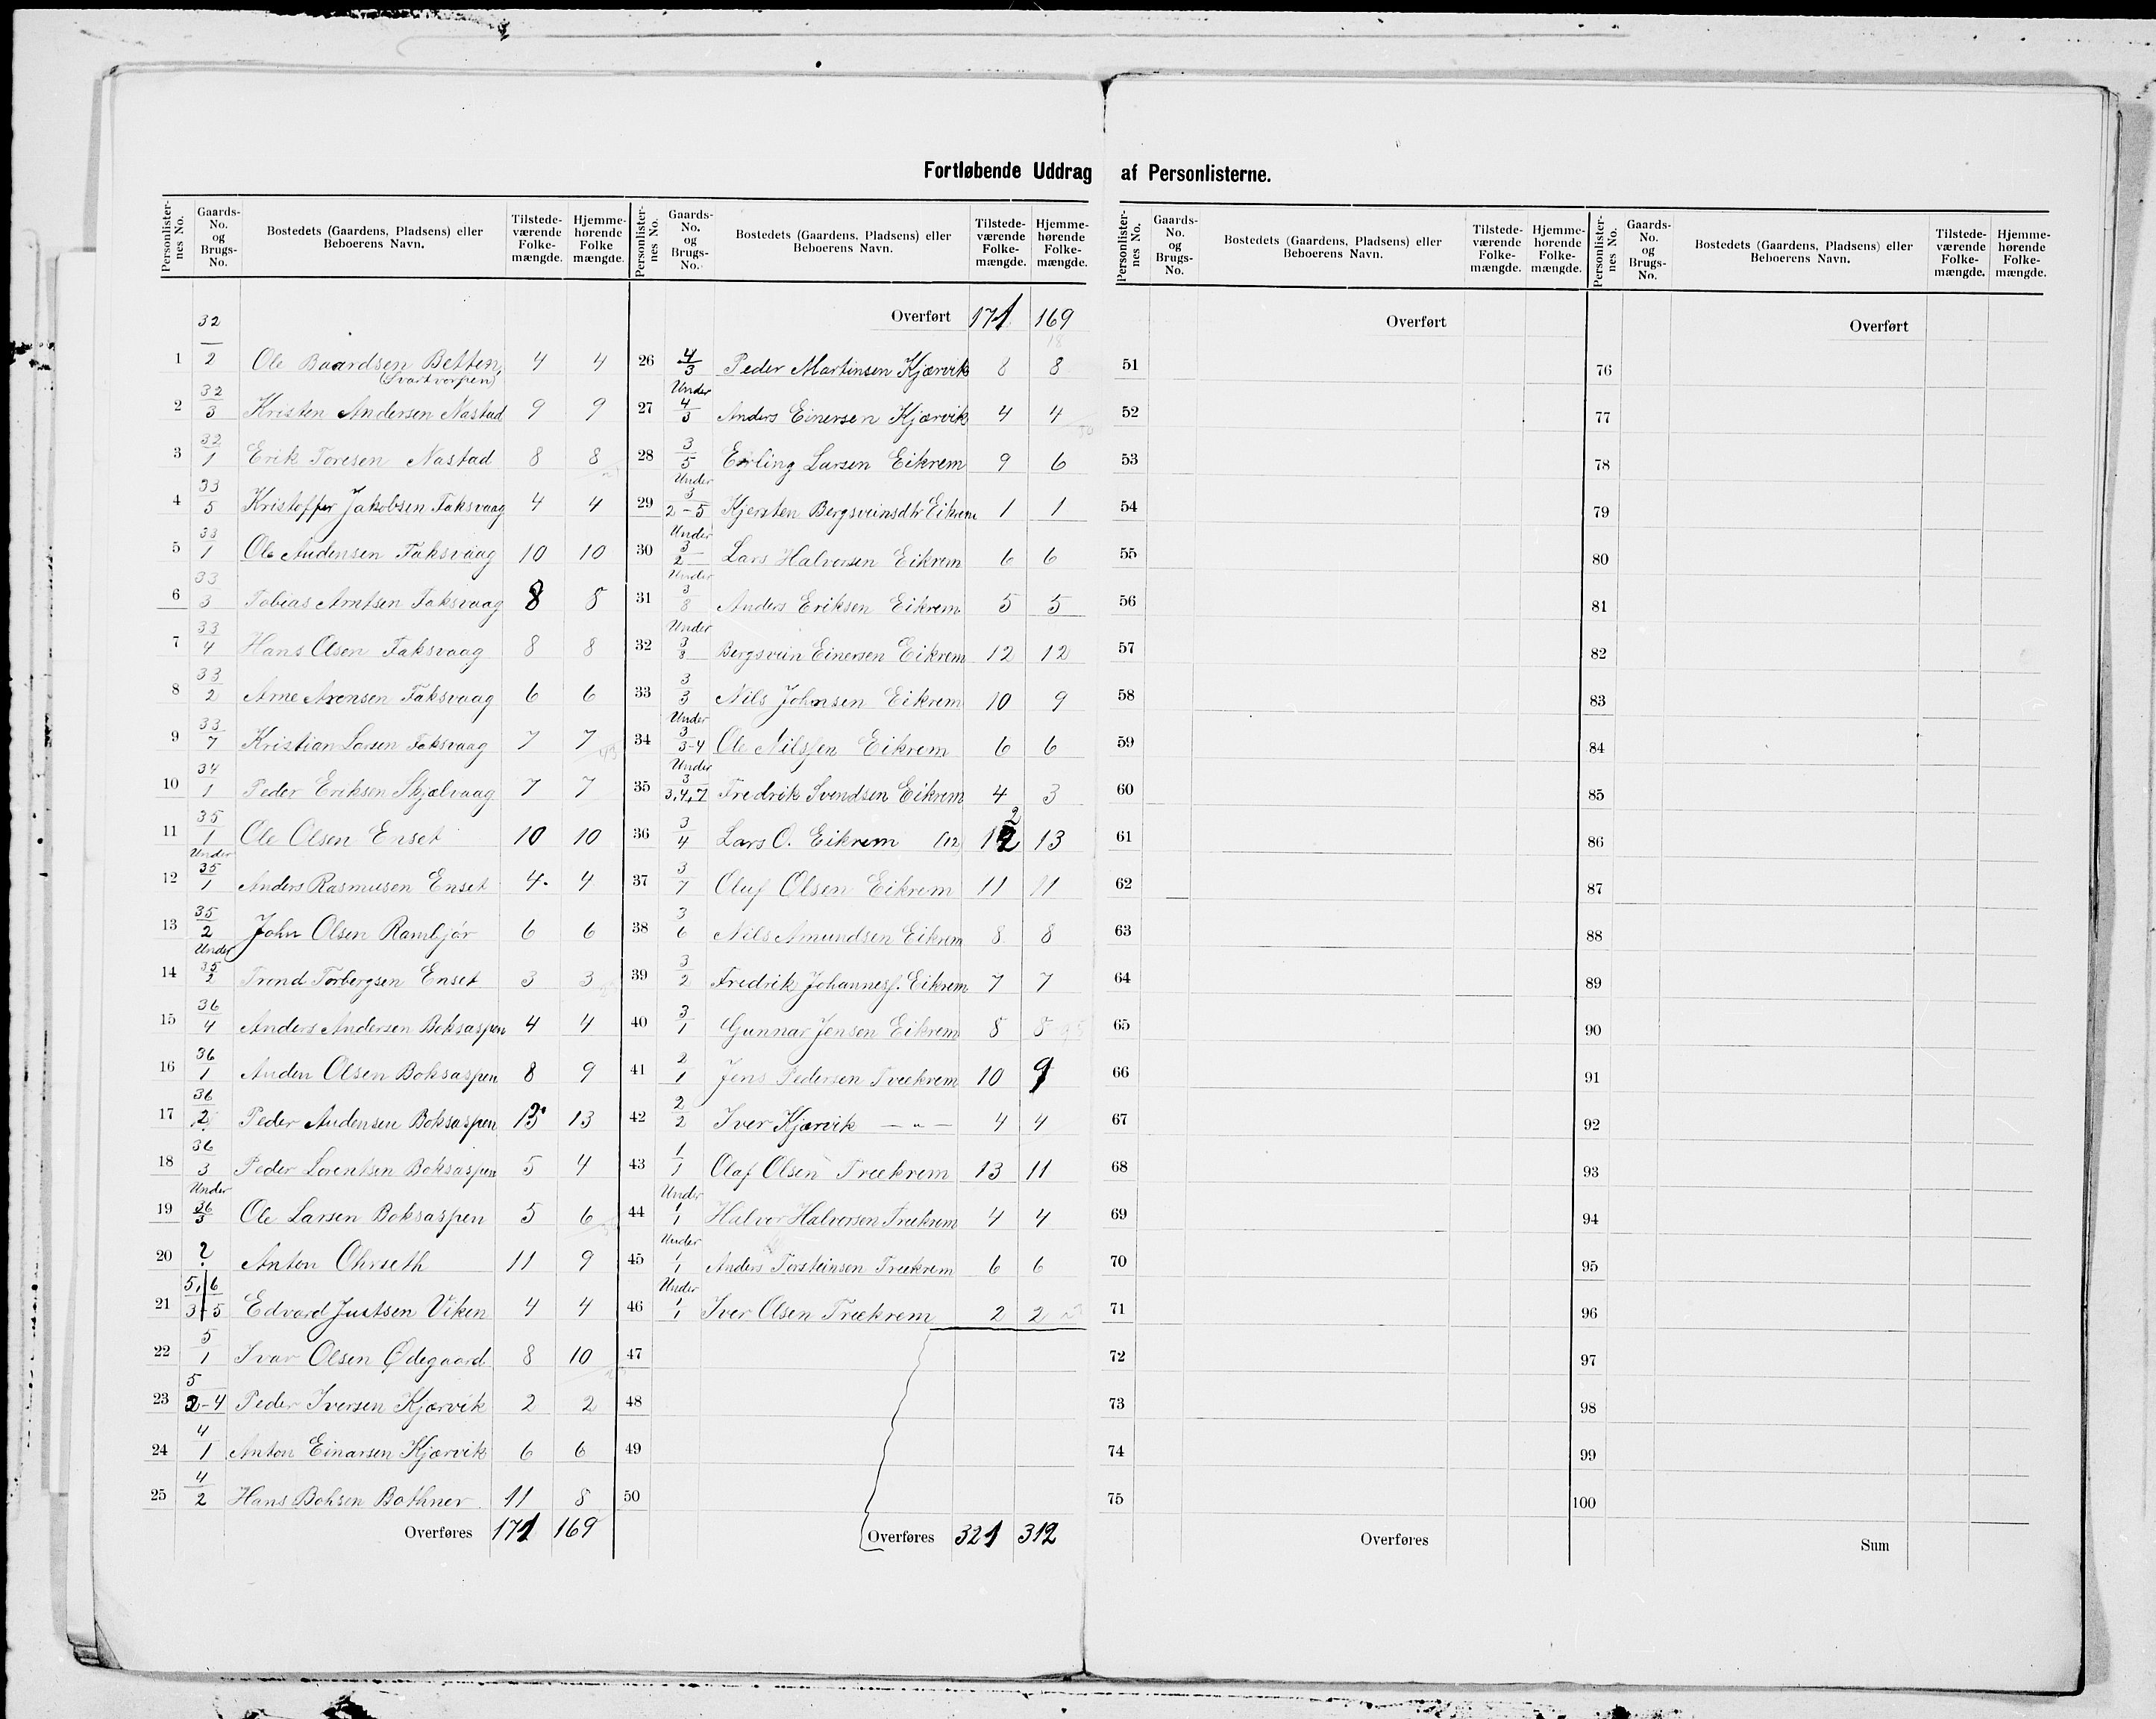 Fortløbende Uddrag af Personlisterne.
Personlister-nes No. | Gaards-No. og Brugs-No. | Bostedets (Gaardens, Pladsens) eller Beboerens Navn. | Tilstede-værende Folke-mængde. | Hjemme-hørende Folke mængde.
1 32/2 Ole Baardsen Betten 4 4
(Svartvorpen)
2 32/3 Kristen Andersen Nastad 9 9
3 32/1 Erik Toresen Nastad 8 8
4 33/5 Kristoffer Jakobsen Faksvaag 4 4
5 33/1 Ole Audensen Faksvaag 10 10
6 33/3 Tobias Arntsen Faksvaag 8 8
7 33/4 Hans Olsen Faksvaag 8 8
8 33/2 Arne Arensen Faksvaag 6 6
9 33/7 Kristian Larsen Faksvaag 7 7
10 34/1 Peder Eriksen Skjølvaag 7 7
11 35/1 Ole Olsen Enset 10 10
12 Under 35/1 Anders Rasmusen Enset 4. 4
13 35/2 John Olsen Rambjør 6 6
14 Under 35/2 Trond Torbergsen Enset 3 3
15 36/4 Anders Andersen Boksaspen 4 4
16 36/1 Auden Olsen Boksaspen 8 9
17 36/2 Peder Audensen Boksaspen 13 13
18 36/3 Peder Lorentsen Boksaspen 5 4
19 Under 36/3 Ole Larsen Boksaspen 5 6
20 ? Anton Ohrseth 11 9
21 5,6/3-5 Edvard Justsen Viken 4 4
22 5/1 Ivar Olsen Ødegaard 8 10
23 5/2-4 Peder Iversen Kjørvik 2 2
24 4/1 Anton Einarsen Kjørvik 6 6
25 4/2 Hans Bohsen Bothner 11 8
Overføres 171 169
Personlister-nes No. | Gaards-No. og Brugs-No. | Bostedets (Gaardens, Pladsens) eller Beboerens Navn. | Tilstede-værende Folke-mængde. | Hjemme-hørende Folke-mængde.
Overført 171 169
18
26 4/3 Peder Martinsen Kjørvik 8 8
27 Under 4/3 Anders Einersen Kjørvik 4 4
28 3/5 Erling Larsen Eikrem 9 6
29 Under 3/2-5 Kjersten Bergsveinsdtr Eikrem 1 1
30 Under 3/2 Lars Halvorsen Eikrem 6 6
31 Under 3/8 Anders Eriksen Eikrem 5 5
32 Under 3/3 Bergsvein Einersen Eikrem 12 12
33 3/3 Nils Johnsen Eikrem 10 9
34 Under 3/3-4 Ole Nilssen Eikrem 6 6
35 Under 3/3,4,7 Fredrik Svendsen Eikrem 4 3
36 3/4 Lars O. Eikrem (12) 12 13
37 3/7 Oluf Olsen Eikrem 11 11
38 3/6 Nils Amundsen Eikrem 8 8
39 3/2 Fredrik Johanness. Eikrem 7 7
40 3/1 Gunnar Jensen Eikrem 8 8
41 2/1 Jens Pedersen Trækrem 10 9
42 2/2 Iver Kjørvik — " — 4 4
43 1/1 Olaf Olsen Trækrem 13 11
44 Under 1/1 Halvor Halvorsen Trækrem 4 4
45 Under 1/1 Anders Torsteinsen Trækrem 6 6
46 Under 1/1 Iver Olsen Trækrem 2 2
47
48
49
50
Overføres 321 312
Personlister-nes No. | Gaards-No. og Brugs-No. | Bostedets (Gaardens, Pladsens) eller Beboerens Navn. | Tilstede-værende Folke-mængde. | Hjemme-hørende Folke-mængde.
Overført
51
52
53
54
55
56
57
58
59
60
61
62
63
64
65
66
67
68
69
70
71
72
73
74
75
Overføres
Personlister-nes No. | Gaards-No. og Brugs-No. | Bostedets (Gaardens, Pladsens) eller Beboerens Navn. | Tilstede-værende Folke-mængde. | Hjemme-hørende Folke-mængde.
Overført
76
77
78
79
80
81
82
83
84
85
86
87
88
89
90
91
92
93
94
95
96
97
98
99
100
Sum